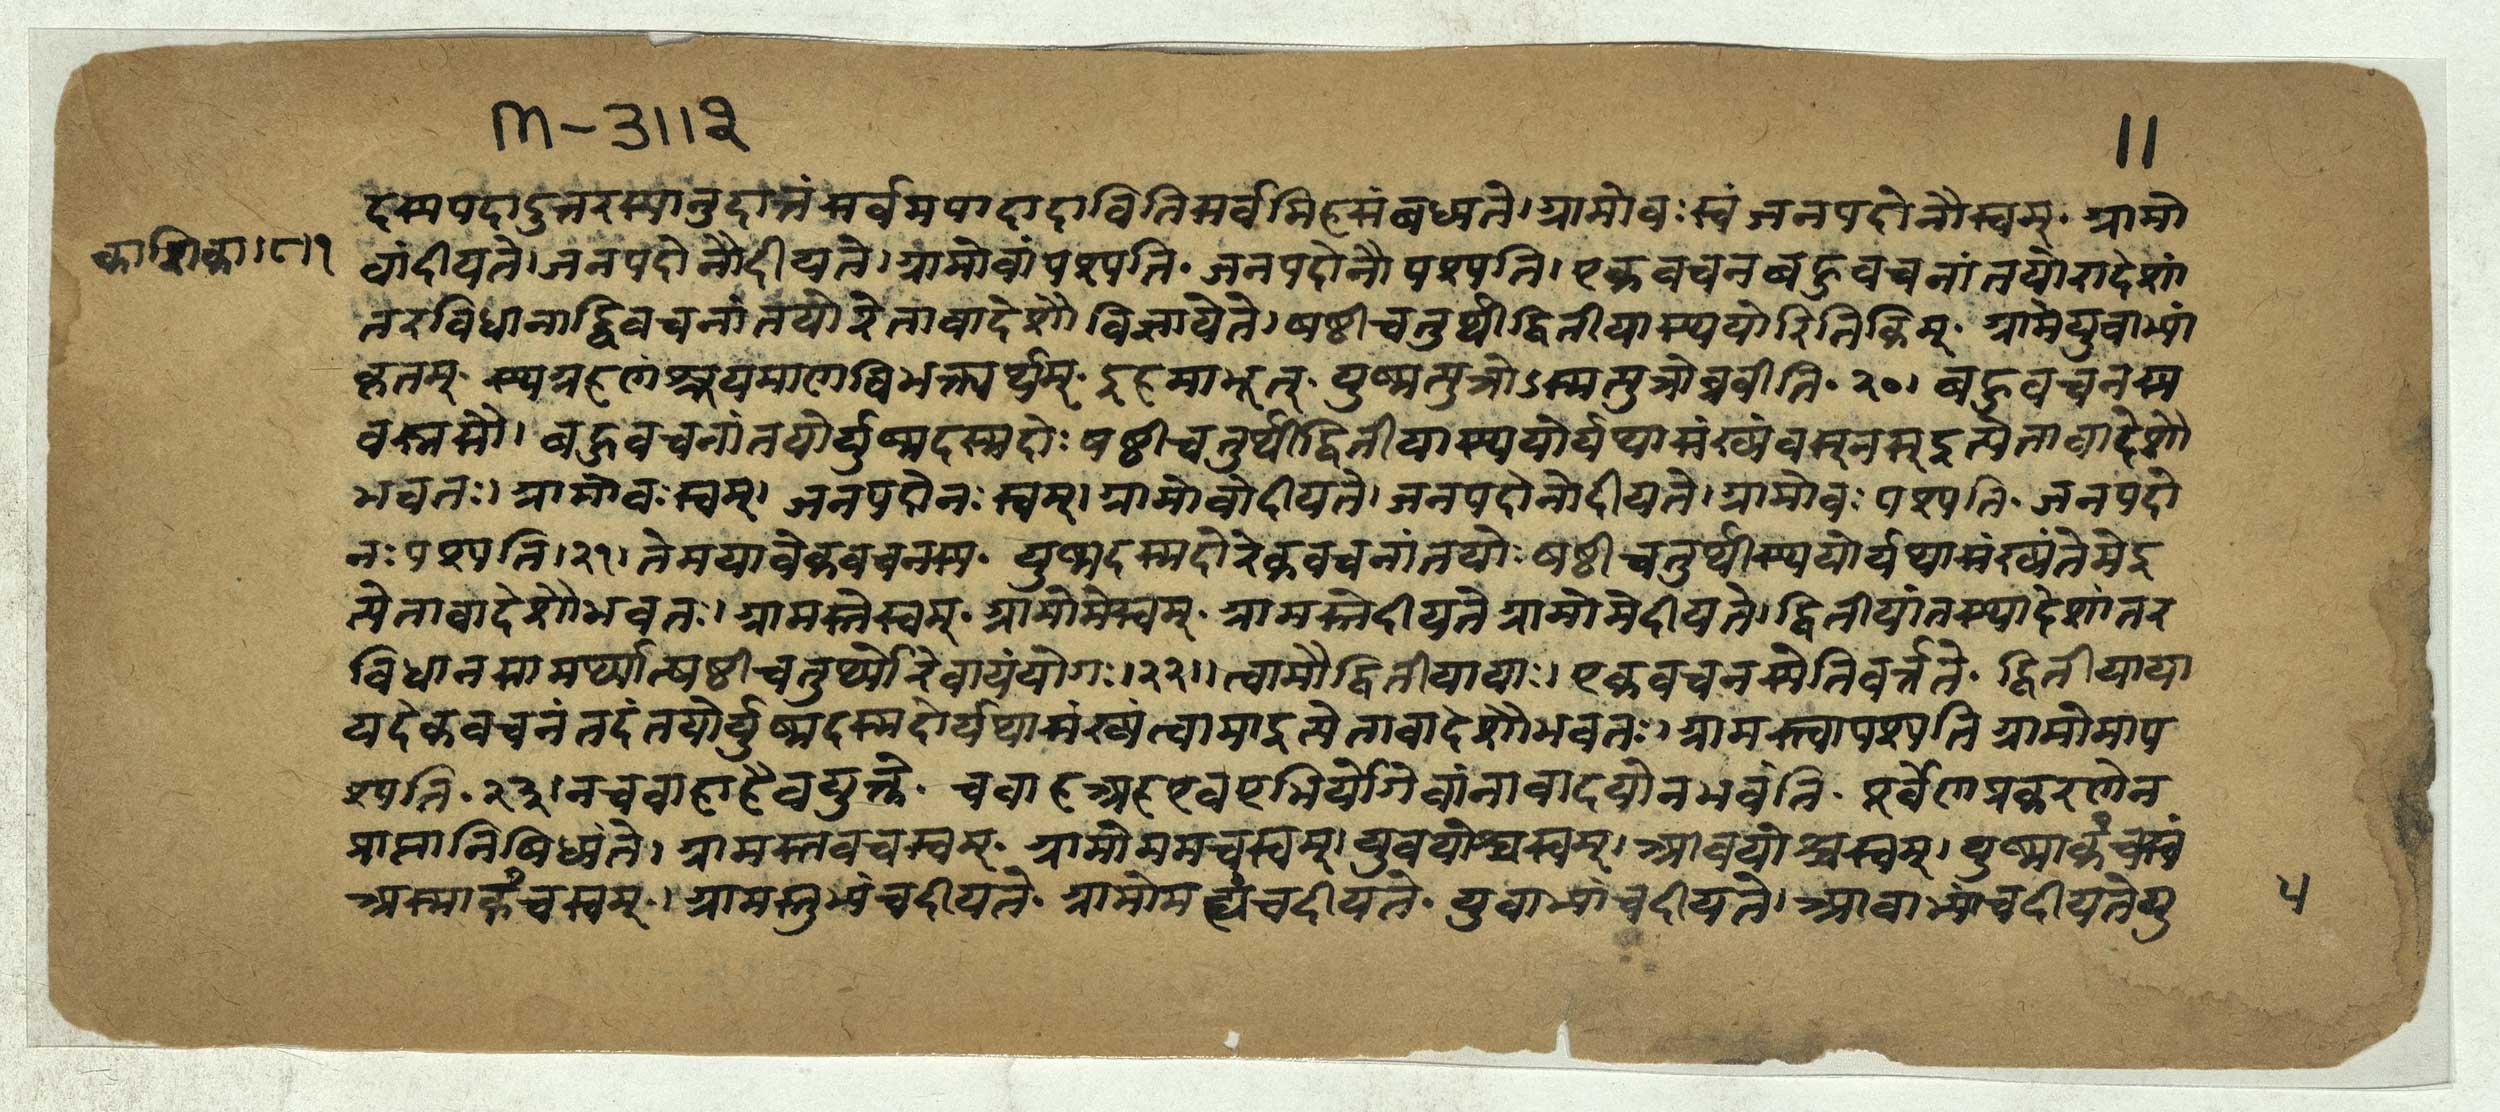 M-3112
11
दस्यपदाडुत्तरस्यानुदात्तं सर्वमपादादावितिसर्वमिहसंबध्यते। ग्रामोवः स्वं जनपदोनौस्वम्. ग्रामो
काशिका।८।१
वांदीयते।जनपदोनौदीयते।ग्रामोवांपश्यति. जनपदोनौपश्यति। एकवचनबहुवचनांतयोरादेशां
तरविधानाद्द्विवचनांतयोरेतावादेशौ विज्ञायेते। षष्ठीचतुर्थीद्वितीयास्थयोरितिकिम्. ग्रामेयुवाभ्यां
कृतम्. स्थग्रहणंश्रूयमाणविभक्त्यर्थम्. इहमाभूत्. युष्मत्पुत्रोऽस्मत्पुत्रोब्रवीति. २०। बहुवचनस्य
वस्नसौ। बहुवचनांतयोर्युष्मदस्मदोः षष्ठीचतुर्थीद्वितीयास्थयोर्यथासंख्यंवस्नस्इत्येतावादेशौ
भवतः। ग्रामोवःस्वम्। जनपदोनः स्वम्। ग्रामोवोदीयते। जनपदोनोदीयते। ग्रामोवः पश्यति. जनपदो
नःपश्यति।२१। तेमयावेकवचनस्य. युष्मदस्मदोरेकवचनांतयोः षष्ठीचतुर्थीस्थयोर्यथासंख्यंतेमेइ
त्येतावादेशौभवतः। ग्रामस्तेस्वम्. ग्रामोमेस्वम्. ग्रामस्तेदीयते ग्रामोमेदीयते। द्वितीयांतस्यादेशांतर
विधानसामर्थ्यात्षष्ठीचतुर्थ्योरेवायंयोगः।२२॥ त्वामौद्वितीयायाः। एकवचनस्येतिवर्त्तते. द्वितीयाया
यदेकवचनं तदंतयोर्युष्मदस्मदोर्यथासंख्यंत्वामाइत्येतावादेशौभवतः। ग्रामस्त्वापश्यति ग्रामोमाप
श्यति. २३।नचवाहाहैवयुक्ते. चवाहअहएवएभिर्योगेवांनावादयोनभवंति. पूर्वेणप्रकरणेन
प्राप्तानिषिध्यंते। ग्रामस्तवचस्वम्. ग्रामोममचस्वम्। युवयोश्चस्वम्। आवयोश्चस्वम्। युष्माकंचस्वं
अस्माकंचस्वम्.। ग्रामस्तुभ्यंचदीयते. ग्रामोमह्यंचदीयते. युवाभ्यांचदीयते। आवाभ्यांचदीयतेयु
५